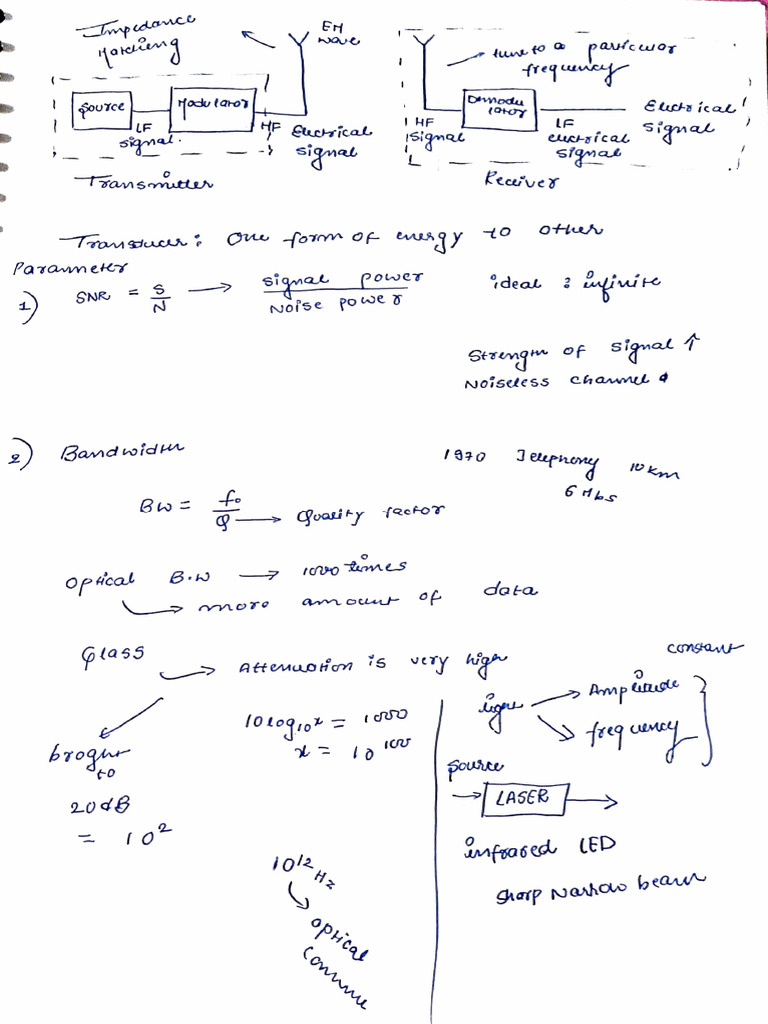 Impedance
Matching
EM
wave
Source
Modulator
LF
signal.
HF
Electrical
signal
Transmitter
tune to a particular
frequency
Demodu
lator
HF
signal
LF
electrical
signal
Electrical
signal
Receiver
Transducer: One form of energy to other
Parameter
1) SNR = S/N → signal power / Noise power ideal : infinite
Strength of signal ↑
Noiseless channel
2) Bandwidth
1970 Telephony 10 km
6 Mbs
BW = fo/Q → Quality factor
Optical B.W → 1000 times
→ more amount of data
Glass → Attenuation is very high
10 log10 x = 1000
x = 10^100
broght
to
20 dB
= 10^2
10^12 Hz
optical
commu
constant
light → Amplitude
→ frequency
source
→ LASER →
infrared LED
sharp Narrow beam